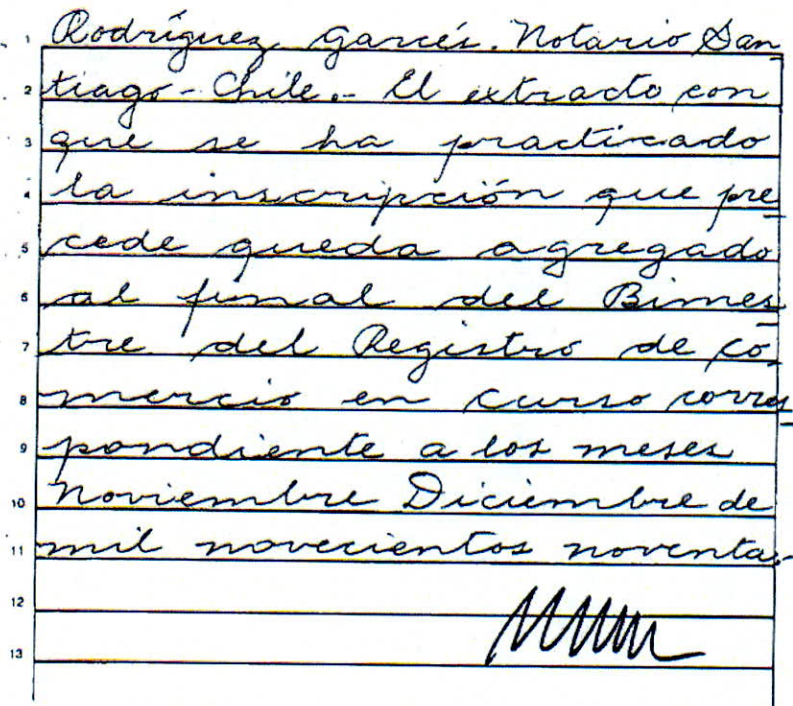 1 Rodríguez Garcés. Notario San
2 tiago - Chile.- El extracto con
3 que se ha practicado
4 la inscripción que pre
5 cede queda agregado
6 al final del Bimes
7 tre del Registro de co
8 mercio en curso corres
9 pondiente a los meses
10 Noviembre Diciembre de
11 mil novecientos noventa.-
12
13